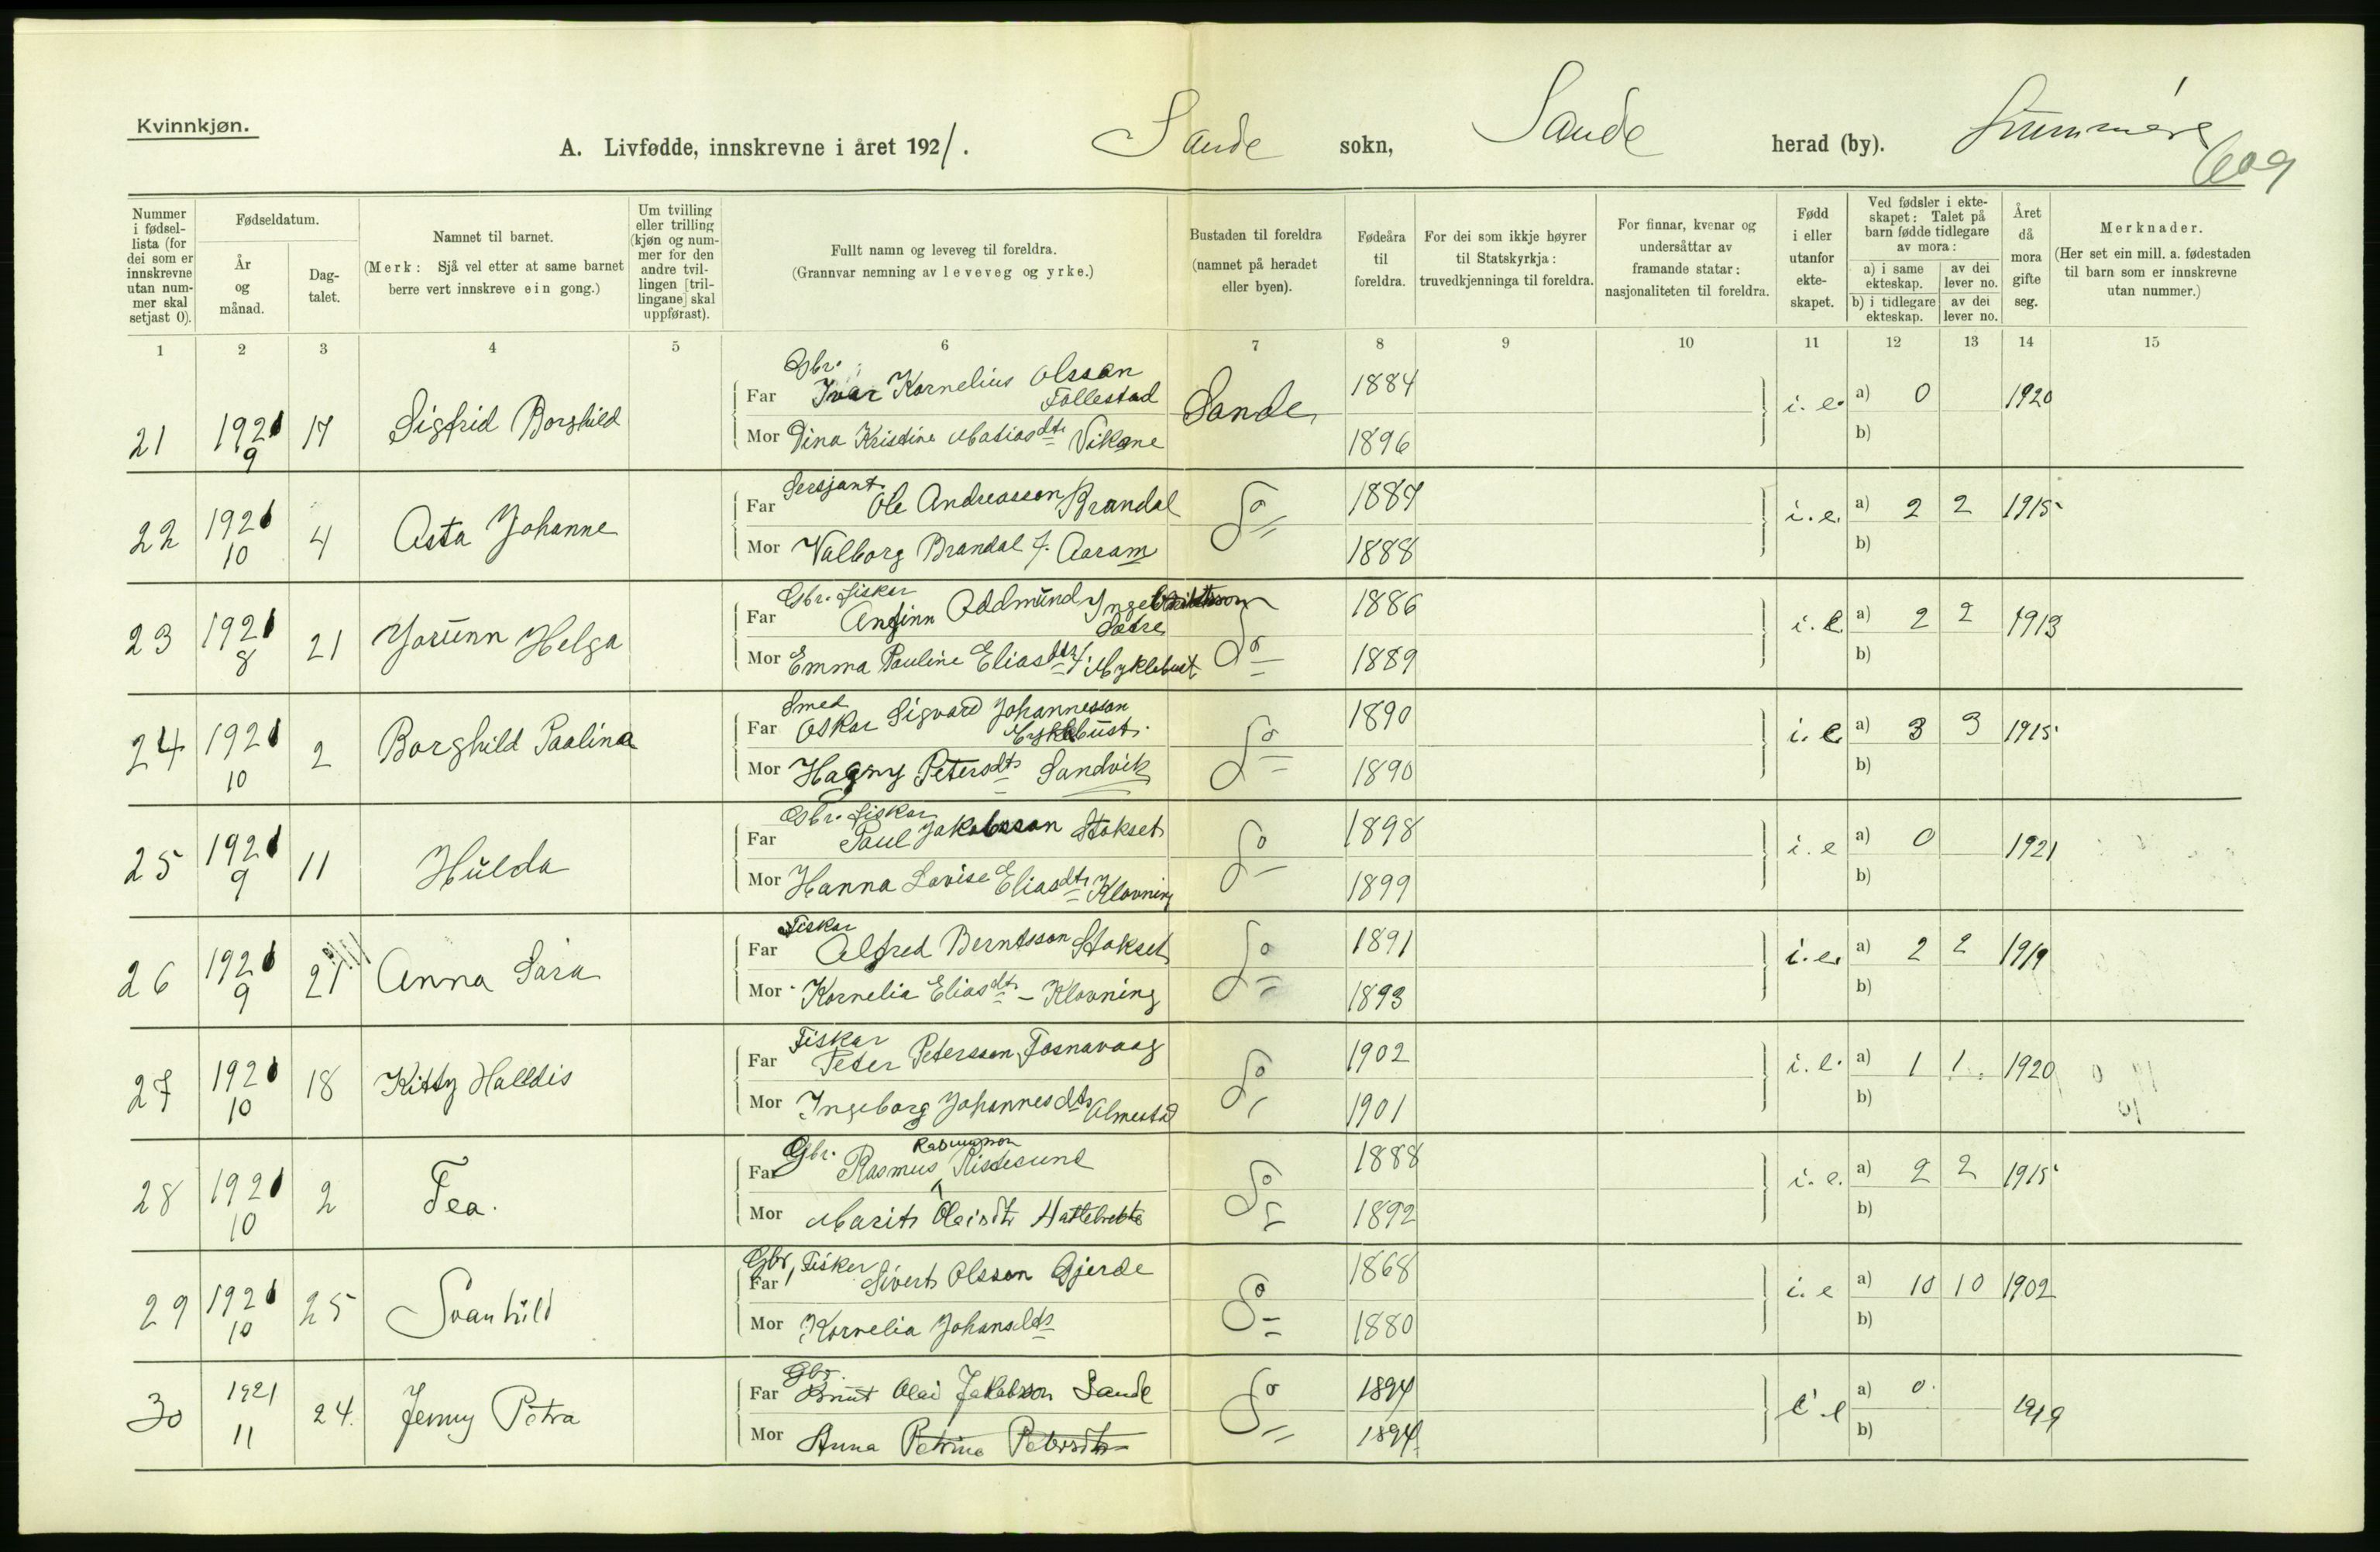 Kvinnkjøn.
A. Livfødde, innskrevne i året 1921. Sande sokn, Sande herad (by). Sunnmøre
609
Nummer i fødsel-lista (for dei som er innskrevne utan num-mer skal setjast 0).
Fødseldatum.
År og månad.
Dag-talet.
Namnet til barnet.
(Merk: Sjå vel etter at same barnet berre vert innskreve ein gong.)
Um tvilling eller trilling (kjøn og num-mer for den andre tvil-lingen [tril-lingane] skal uppførast).
Fullt namn og leveveg til foreldra.
(Grannvar nemning av leveveg og yrke.)
Bustaden til foreldra (namnet på heradet eller byen).
Fødeåra til foreldra.
For dei som ikkje høyrer til Statskyrkja: truvedkjenninga til foreldra.
For finnar, kvenar og undersåttar av framande statar: nasjonaliteten til foreldra.
Fødd i eller utanfor ekte-skapet.
Ved fødsler i ekte-skapet: Talet på barn fødde tidlegare av mora:
a) i same ekteskap. av dei lever no.
b) i tidlegare ekteskap. av dei lever no.
Året då mora gifte seg.
Merknader.
(Her set ein mill. a. fødestaden til barn som er innskrevne utan nummer.)
1 2 3 4 5 6 7 8 9 10 11 12 13 14 15
Gbr.
21 1921 9 17 Sigfrid Borghild Far Ivar Kornelius Olsson Follestad Sande 1884 i. e. a) 0 1920
Mor Dina Kristine Matiasdtr Vikane 1896 b)
Sersjant.
22 1921 10 4 Asta Johanne Far Ole Andreasson Brandal Do 1887 i. e. a) 2 2 1915
Mor Valborg Brandal f. Aaram 1888 b)
Gbr. fisker
23 1921 8 21 Jorunn Helga Far Anfinn Oddmund Sætre Do 1886 i. e. a) 2 2 1913
Mor Emma Pauline Eliasdtr f. Myklebust 1889 b)
Smed
24 1921 10 2 Borghild Paulina Far Oskar Sigvard Johannesson Myklebust Do 1890 i. e. a) 3 3 1915
Mor Hagny Petersdtr Sandvik 1890 b)
Gbr. fiskar
25 1921 9 11 Hulda Far Paul Jakobsson Stokset Do 1898 i. e a) 0 1921
Mor Hanna Lovise Eliasdtr Klovning 1899 b)
Fiskar
26 1921 9 21 Anna Sara Far Alfred Berntsson Stokset Do 1891 i. e. a) 2 2 1919
Mor Kornelia Eliasdtr - Klovning 1893 b)
Fiskar
27 1921 10 18 Kitty Halldis Far Peter Petersson Fosnavaag Do 1902 i. e. a) 1 1 1920
Mor Ingeborg Johannesdtr Almestad 1901 b)
Gbr. Rasmusson
28 1921 10 2 Tea. Far Rasmus Ristesund Do 1888 i. e. a) 2 2 1915
Mor Marit Olaisdtr 1892 b)
Gbr, Fisker
29 1921 10 25 Svanhild Far Sivert Olsson Gjerde Do 1868 i. e a) 10 10 1902
Mor Kornelia Johansdtr 1880 b)
Gbr.
30 1921 11 24. Jenny Petra Far Knut Olai Jakobson Sande Do 1894 i. e a) 0 1919
Mor Anna Petrine Petersdtr 1894 b)